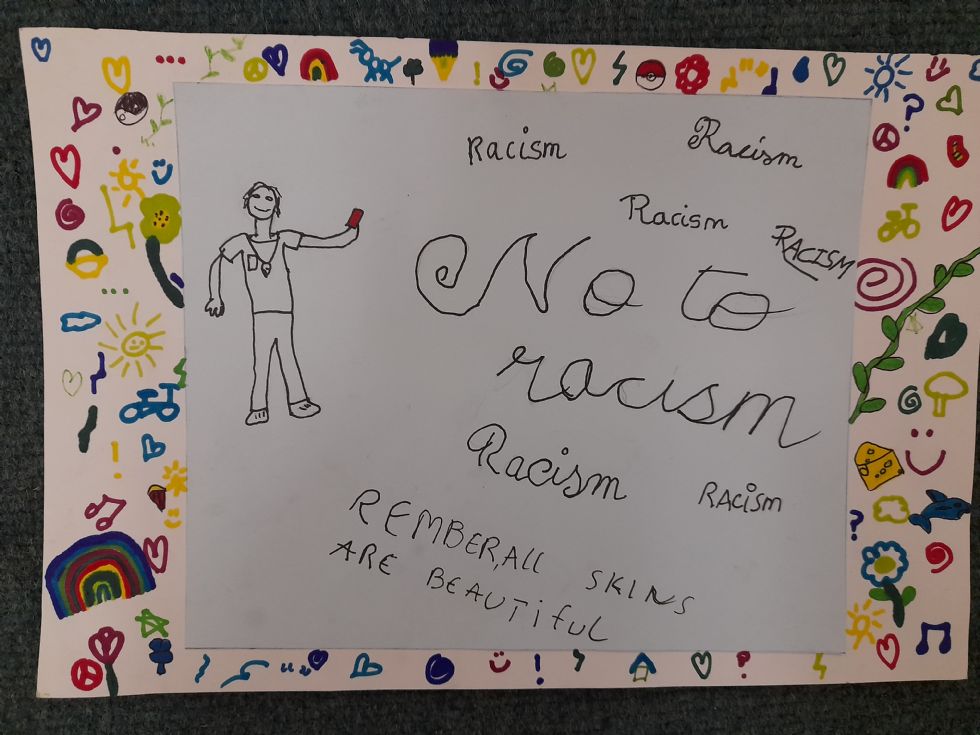 Racism
Racism
Racism
RACISM
No to
racism
Racism
RACISM
REMBER,All SKINS
ARE BEAUTifUL